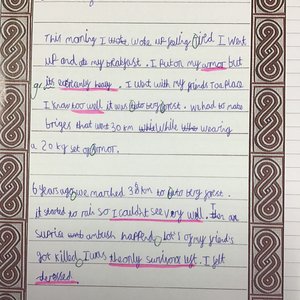 This morning I woke woke up feeling tired I went
up and ate my breakfast. I Put on my armor but
its extremly heavy. I went with my friends to a Place
I know too well it was toto berg forest. we had to make
briges that went 30 km while while wearing
a 20 kg set of armor.
6 years ago we marched 38 km to toto berg forest.
it started to rain so I couldn't see very well. Then an
surprise ambush happend, lot's of my friends
got killed, I was the only survivor left. I felt
depressed.